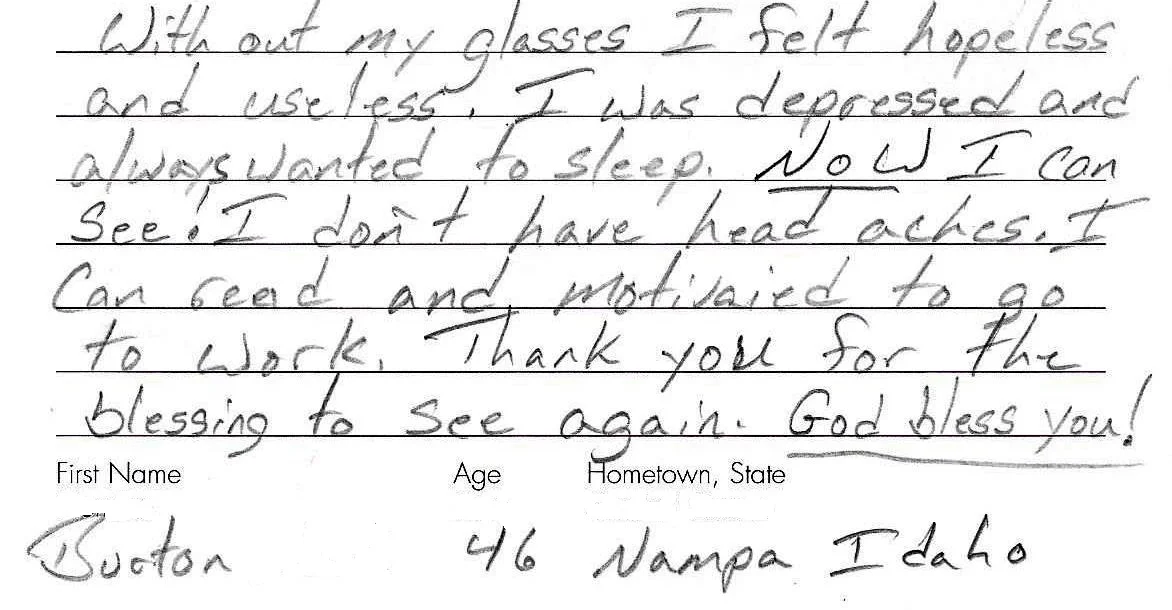 With out my glasses I felt hopeless
and useless. I was depressed and
always wanted to sleep. Now I can
See! I don't have head aches. I
Can reed and motivaied to go
to work. Thank you for the
blessing to see again. God bless you!
First Name Age Hometown, State
Burton 46 Nampa Idaho